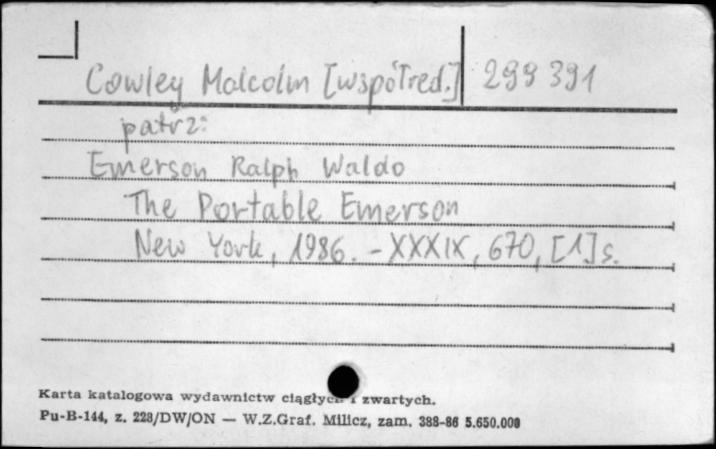 Cowley Malcolm [współred.] 299 391
patrz:
Emerson Ralph Waldo
The Portable Emerson
New York, 1986. - XXXIX, 670, [1] s.
Karta katalogowa wydawnictw ciągłych i zwartych.
Pu-B-144, z. 228/DW/ON — W.Z.Graf. Milicz, zam. 388-86 5.650.000